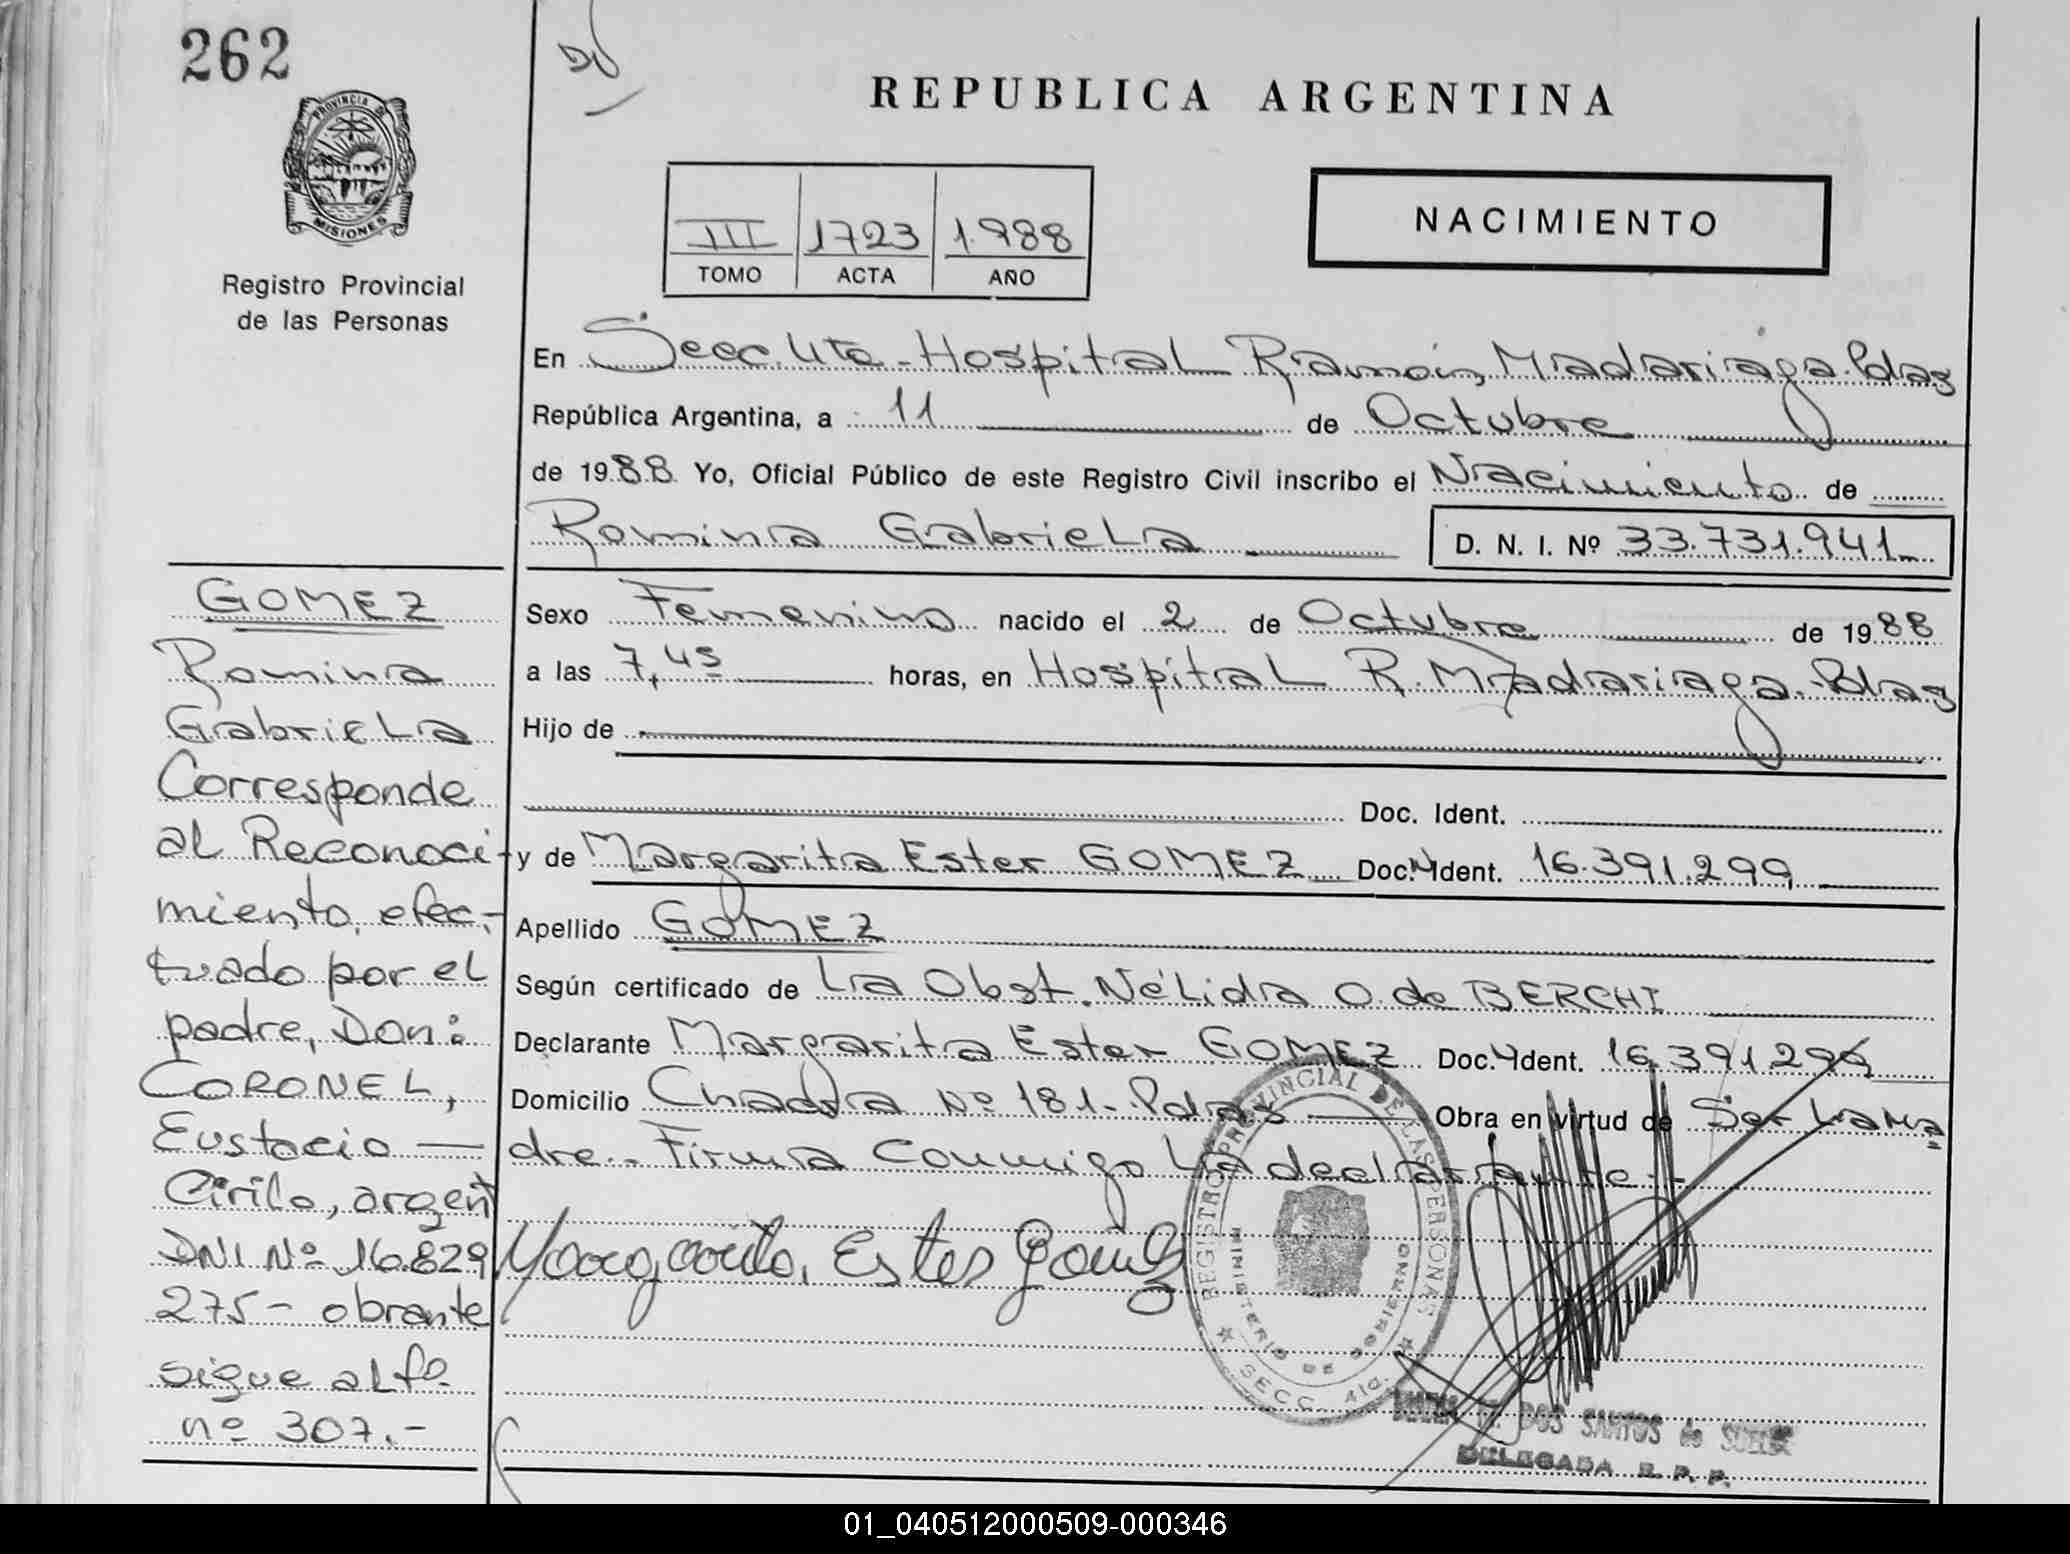 262
PROVINCIA DE
MISIONES
Registro Provincial
de las Personas
REPUBLICA ARGENTINA
III 1723 1.988
TOMO ACTA AÑO
NACIMIENTO
En Secc. 4ta. Hospital Ramón Madariaga. Pdas
República Argentina, a 11 de Octubre
de 1988 Yo, Oficial Público de este Registro Civil inscribo el Nacimiento de
Romina Gabriela D. N. I. Nº 33.731.941
Sexo Femenino nacido el 2 de Octubre de 1988
a las 7,45 horas, en Hospital R. Madariaga. Pdas
Hijo de
Doc. Ident.
y de Margarita Ester GOMEZ Doc. Ident. 16.391.299
Apellido GOMEZ
Según certificado de La Obst. Nélida O. de BERCHI
Declarante Margarita Ester GOMEZ Doc. Ident. 16.391.299
Domicilio Chacra Nº 181- Pdas Obra en virtud de Ser La Ma
dre.- Firma Conmigo La declarante.-
Margarita Ester Gomez
REGISTRO PROVINCIAL DE LAS PERSONAS
MINISTERIO DE GOBIERNO
SECC. 4ta.
DOS SANTOS de
DELEGADA R. P. P.
GOMEZ
Romina
Gabriela
Corresponde
al Reconoci-
miento, efec-
tuado por el
padre, Don:
CORONEL,
Eustacio
Cirilo, argent
DNI Nº 16.829
275- obrante
sigue al fº
nº 307.-
01_040512000509-000346